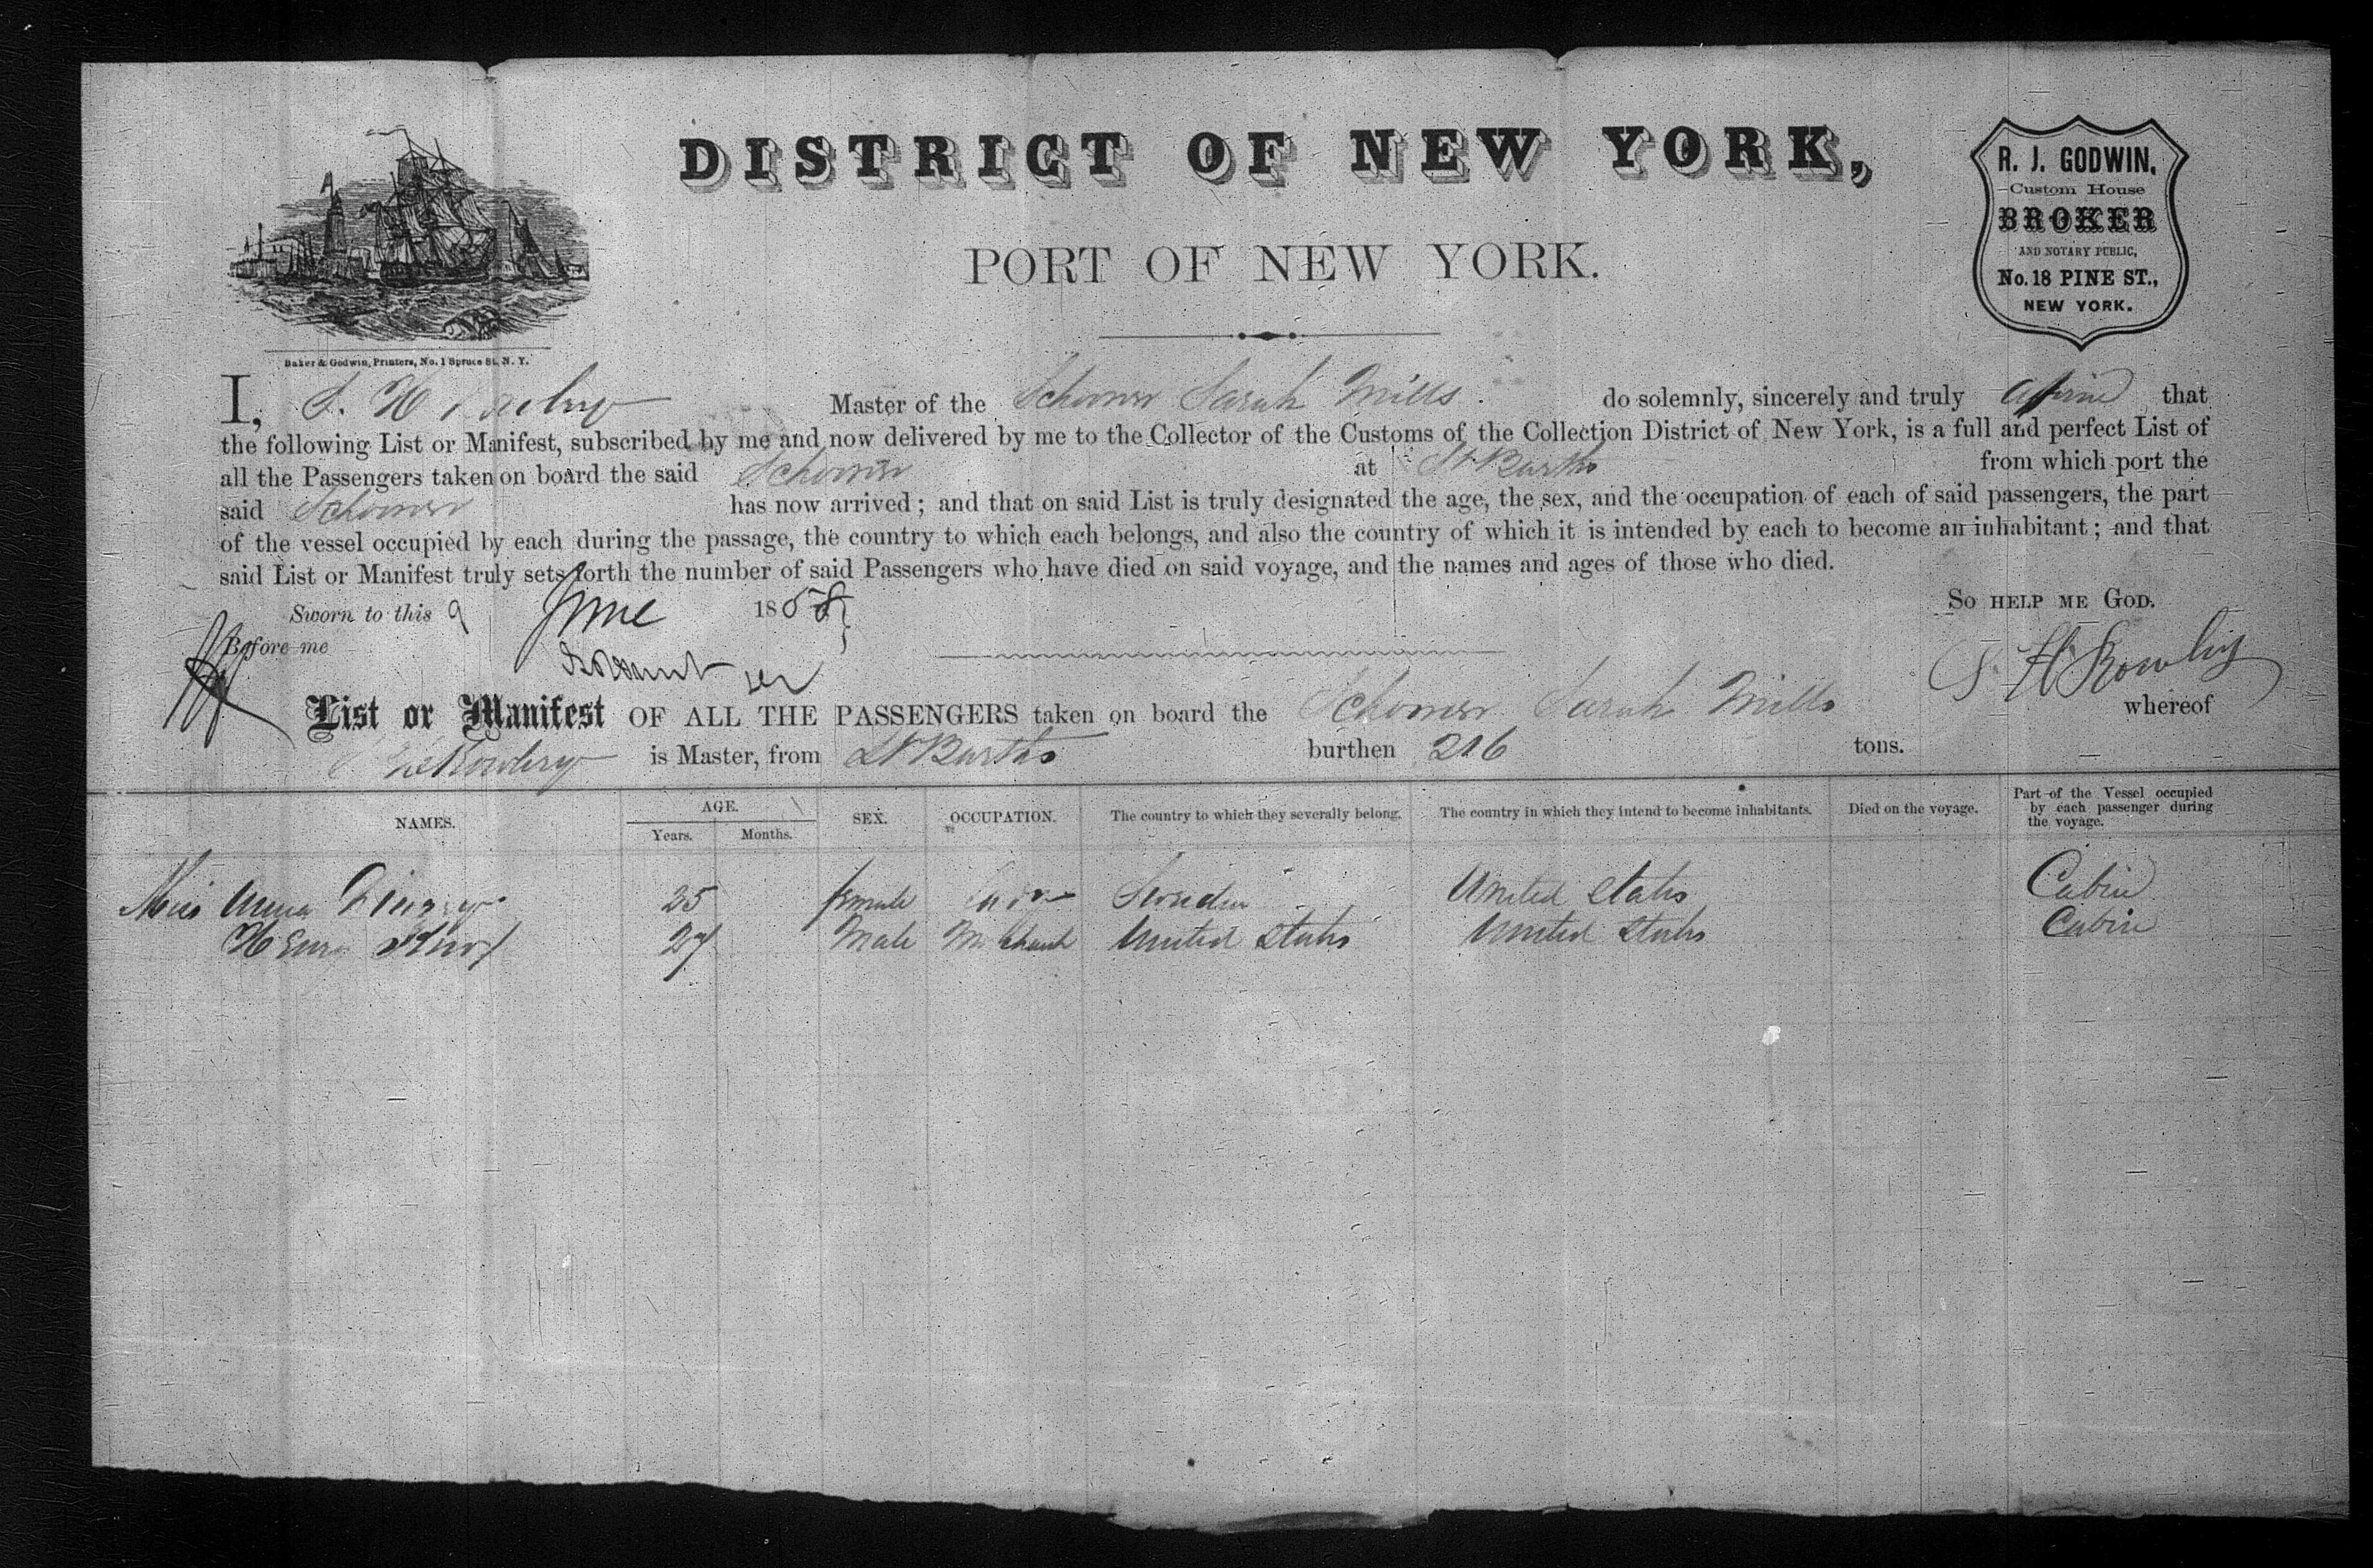 DISTRICT OF NEW YORK,
PORT OF NEW YORK.
R. J. GODWIN,
Custom House
BROKER
AND NOTARY PUBLIC,
No. 18 PINE ST.,
NEW YORK.
Baker & Godwin, Printers, No. 1 Spruce St. N. Y.
I, S. H Master of the Schooner Sarah Mills do solemnly, sincerely and truly affirm that
the following List or Manifest, subscribed by me and now delivered by me to the Collector of the Customs of the Collection District of New York, is a full and perfect List of
all the Passengers taken on board the said Schooner at St Barths from which port the
said Schooner has now arrived; and that on said List is truly designated the age, the sex, and the occupation of each of said passengers, the part
of the vessel occupied by each during the passage, the country to which each belongs, and also the country of which it is intended by each to become an inhabitant; and that
said List or Manifest truly sets forth the number of said Passengers who have died on said voyage, and the names and ages of those who died.
Sworn to this 9 June 1858 So HELP ME GOD.
Before me
S. H Rowley
List or Manifest OF ALL THE PASSENGERS taken on board the Schooner Sarah Mills whereof
Rowley is Master, from St Barths burthen 216 tons.
NAMES. AGE. Years. Months. SEX. OCCUPATION. The country to which they severally belong. The country in which they intend to become inhabitants. Died on the voyage. Part of the Vessel occupied by each passenger during the voyage.
Miss Anna 25 female Sweden United States Cabin
Henry 27 Male Merchant United States United States Cabin